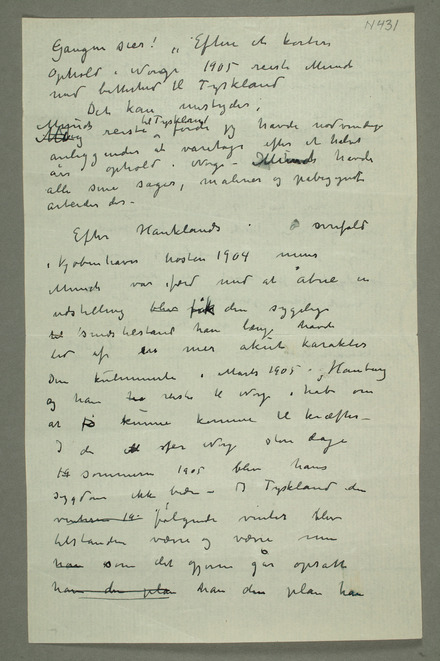 N431
Gaugin sier! „Efter et kortere
Ophold i Norge 1905 reiste Munch
med   til Tyskland
Det kan mistydes,
Munch reiste til Tyskland fordi jeg havde nødvendige
anliggender at varetage efter et halvt
års ophold i Norge – Munch havde
alle sine sager, malerier og påbegynte
arbeider der –
Efter Hauklands overfald
i Kjøbenhavn høsten 1904 mens
Munch var ifærd med at åbne en
udstilling blev fik den sygelige
sindstilstand han længe havde
lidt af en mer akut karakter
Den kulminerte i Marts 1905 i Hamburg
og han reiste til Norge i håb om
at kunne komme til kræfter –
I de Norge
sommeren 1905 blev hans
sygdom ikke bedre – I Tyskland den
vinteren 19 følgende vinter blev
tilstanden værre og værre men
som det gjerne går opsatt
han den plan han den plan han